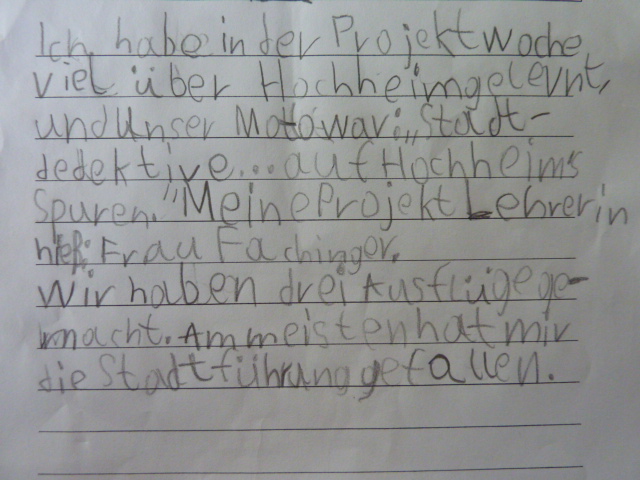 Ich habe in der Projektwoche
viel über Hochheim gelernt,
und unser Moto war: „Stadt-
dedektive... auf Hochheims
Spuren." Meine Projekt Lehrerin
hieß: Frau Fachinger.
Wir haben drei Ausflüge ge-
macht. Am meisten hat mir
die Stadtführung gefallen.